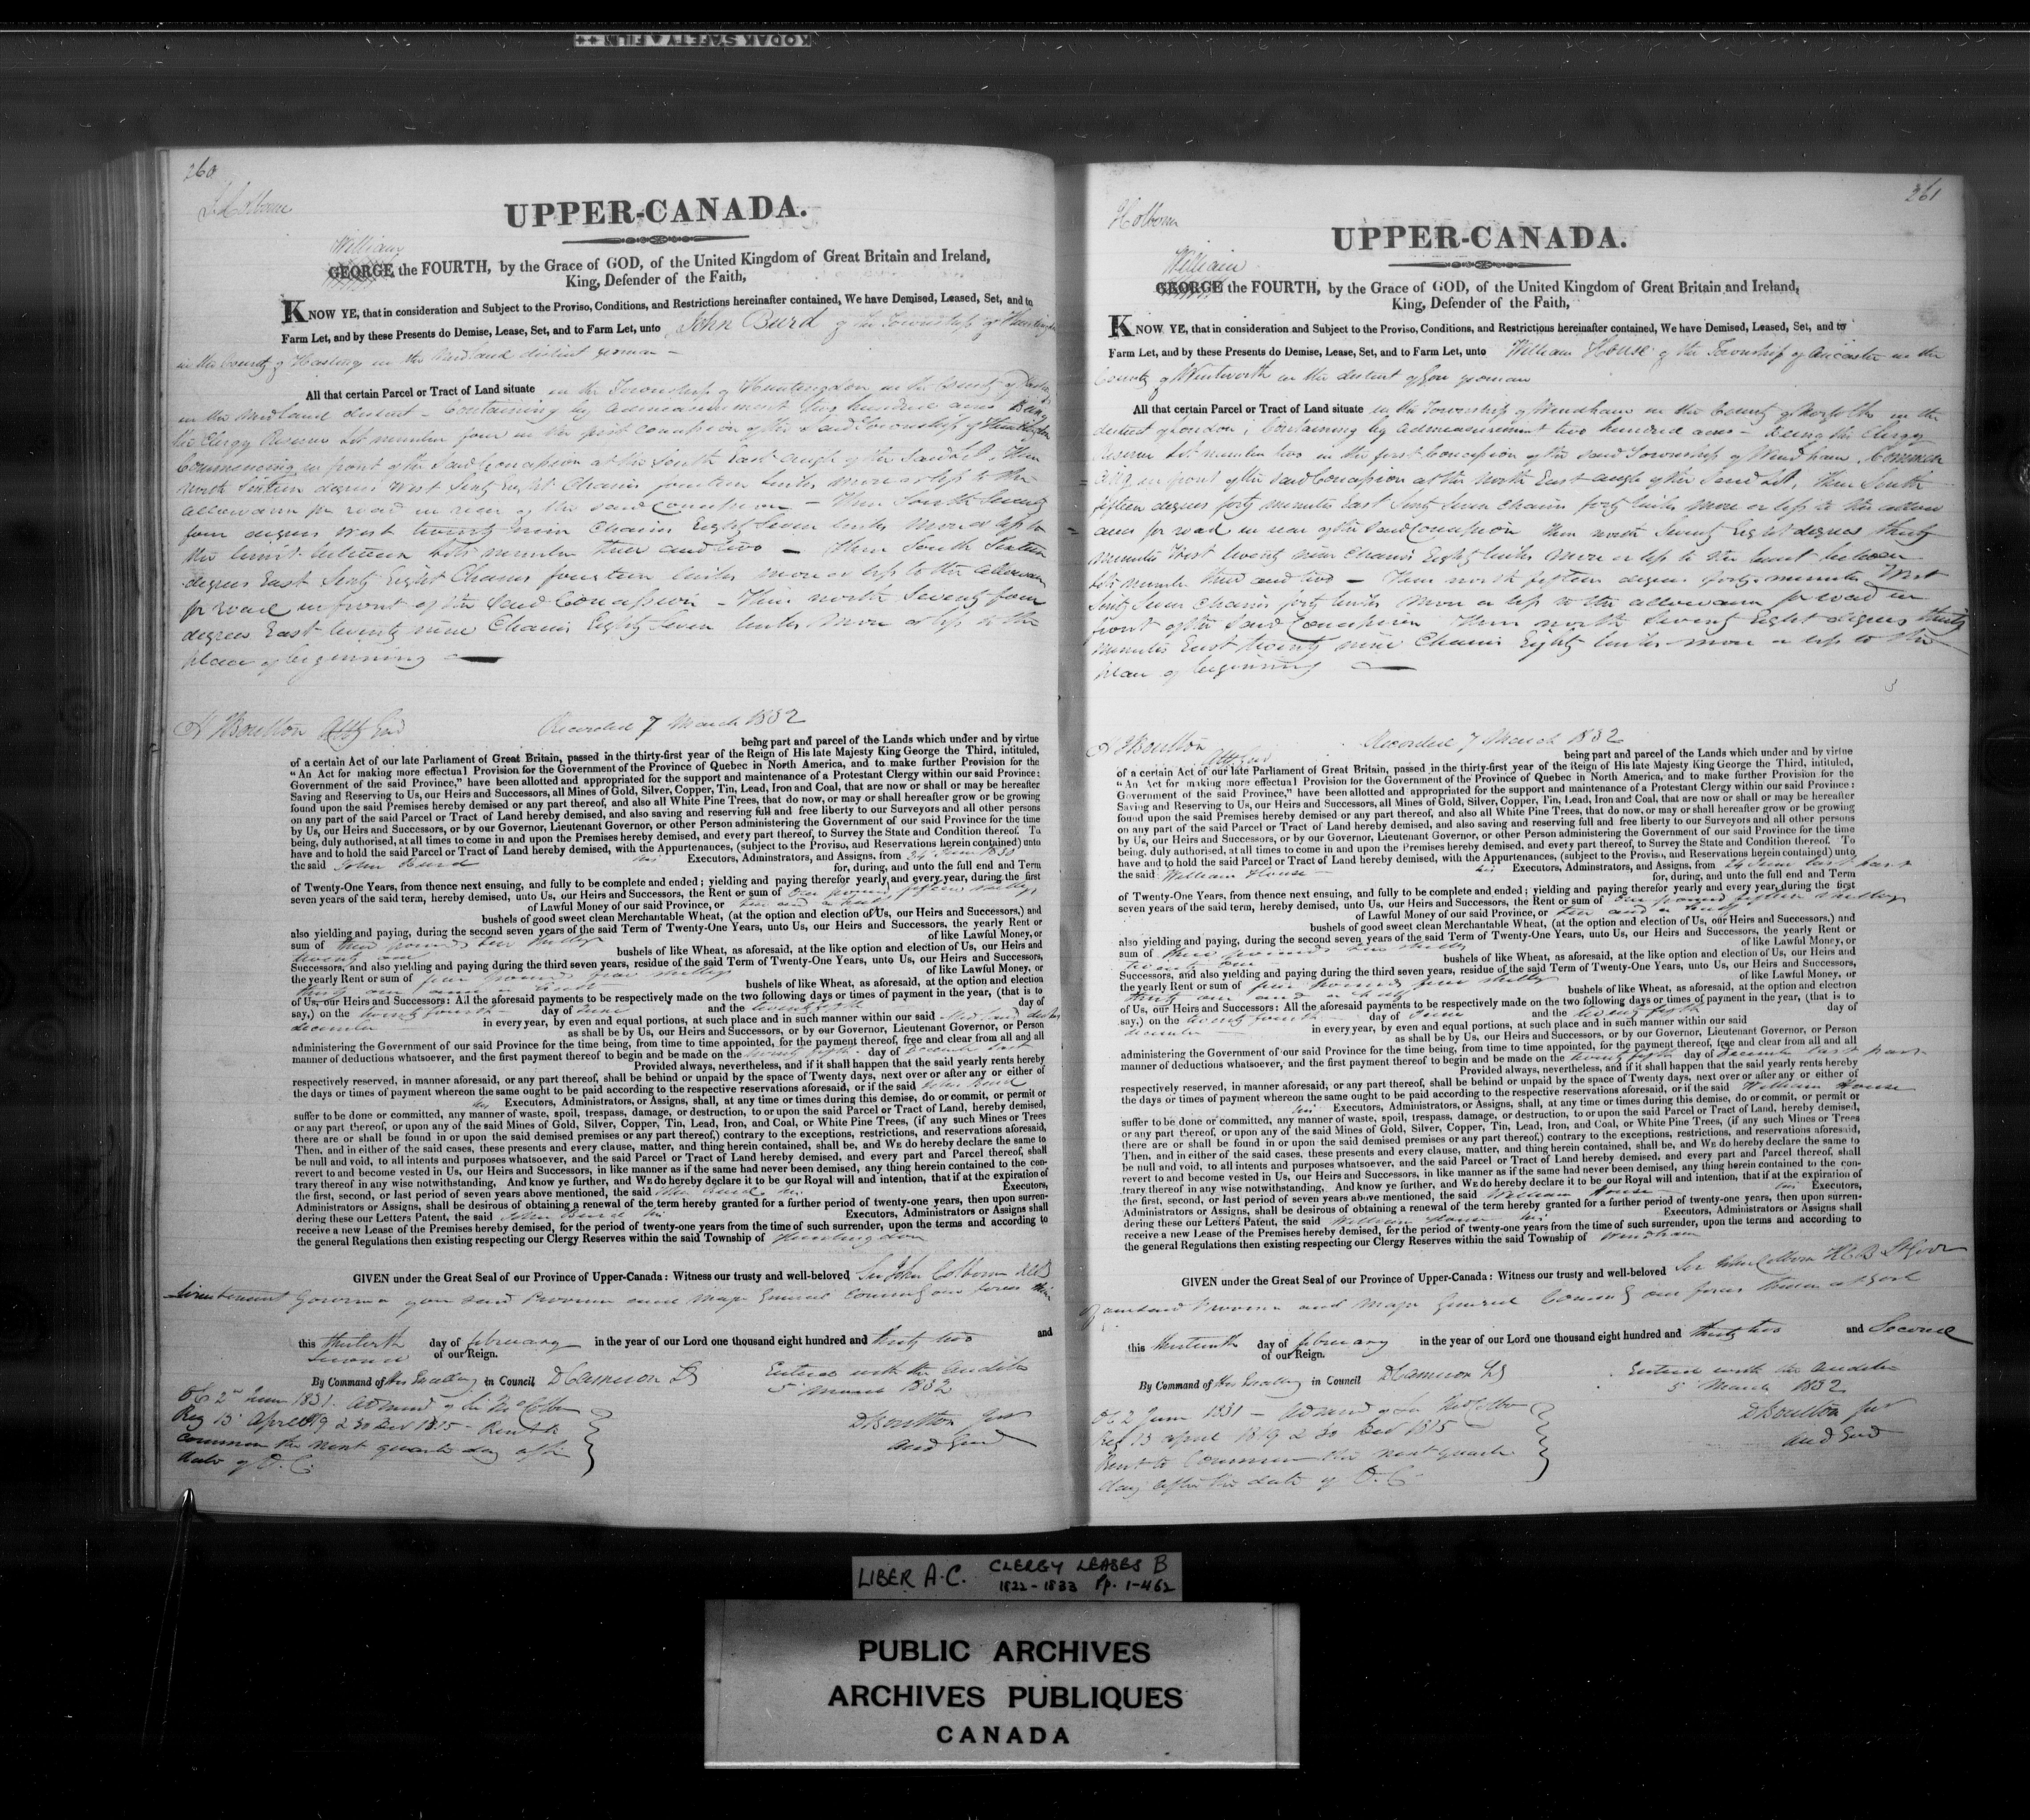 KODAK SAFETY FILM ++
260
J Colborne
UPPER-CANADA.
William
GEORGE the FOURTH, by the Grace of GOD, of the United Kingdom of Great Britain and Ireland,
King, Defender of the Faith,
KNOW YE, that in consideration and Subject to the Proviso, Conditions, and Restrictions hereinafter contained, We have Demised, Leased, Set, and to
Farm Let, and by these Presents do Demise, Lease, Set, and to Farm Let, unto John Burd of the Township of Huntingdon
in the County of Hastings in the Midland district yeoman —
All that certain Parcel or Tract of Land situate in the Township of Huntingdon in the County of Hastings
in the Midland district — Containing by admeasurement two hundred acres Being
the Clergy Reserve Lot number four in the first Concession of the said Township of Huntingdon
Commencing in front of the said Concession at the South East angle of the said Lot, Then
north Sixteen degrees West Sixty eight Chains fourteen links more or less to the
allowance for road in rear of the said Concession — Then South Seventy
four degrees West twenty nine Chains Eighty Seven links more or less to
the limit between Lots number three and two — Then South Sixteen
degrees East Sixty Eight Chains fourteen links more or less to the allowance
for road in front of the said Concession — Then north Seventy four
degrees East twenty nine Chains Eighty Seven links More or less to the
place of beginning
H J Boulton Atty Genl Recorded 7 March 1832
being part and parcel of the Lands which under and by virtue
of a certain Act of our late Parliament of Great Britain, passed in the thirty-first year of the Reign of His late Majesty King George the Third, intituled,
"An Act for making more effectual Provision for the Government of the Province of Quebec in North America, and to make further Provision for the
Government of the said Province," have been allotted and appropriated for the support and maintenance of a Protestant Clergy within our said Province:
Saving and Reserving to Us, our Heirs and Successors, all Mines of Gold, Silver, Copper, Tin, Lead, Iron and Coal, that are now or shall or may be hereafter
found upon the said Premises hereby demised or any part thereof, and also all White Pine Trees, that do now, or may or shall hereafter grow or be growing
on any part of the said Parcel or Tract of Land hereby demised, and also saving and reserving full and free liberty to our Surveyors and all other persons
by Us, our Heirs and Successors, or by our Governor, Lieutenant Governor, or other Person administering the Government of our said Province for the time
being, duly authorised, at all times to come in and upon the Premises hereby demised, and every part thereof, to Survey the State and Condition thereof. To
have and to hold the said Parcel or Tract of Land hereby demised, with the Appurtenances, (subject to the Proviso, and Reservations herein contained) unto
the said John Burd his Executors, Adminstrators, and Assigns, from 24th June 1831
for, during, and unto the full end and Term
of Twenty-One Years, from thence next ensuing, and fully to be complete and ended; yielding and paying therefor yearly and every year, during the first
seven years of the said term, hereby demised, unto Us, our Heirs and Successors, the Rent or sum of One pound fifteen shillings
of Lawful Money of our said Province, or ten and a half
bushels of good sweet clean Merchantable Wheat, (at the option and election of Us, our Heirs and Successors,) and
also yielding and paying, during the second seven years of the said Term of Twenty-One Years, unto Us, our Heirs and Successors, the yearly Rent or
sum of three pounds ten shillings of like Lawful Money, or
twenty one bushels of like Wheat, as aforesaid, at the like option and election of Us, our Heirs and
Successors, and also yielding and paying during the third seven years, residue of the said Term of Twenty-One Years, unto Us, our Heirs and Successors,
the yearly Rent or sum of five pounds five shillings of like Lawful Money, or
thirty one and a half bushels of like Wheat, as aforesaid, at the option and election
of Us, our Heirs and Successors: All the aforesaid payments to be respectively made on the two following days or times of payment in the year, (that is to
say,) on the twenty fourth day of June and the twenty fifth day of
december in every year, by even and equal portions, at such place and in such manner within our said Midland district
as shall be by Us, our Heirs and Successors, or by our Governor, Lieutenant Governor, or Person
administering the Government of our said Province for the time being, from time to time appointed, for the payment thereof, free and clear from all and all
manner of deductions whatsoever, and the first payment thereof to begin and be made on the twenty fifth day of December last
Provided always, nevertheless, and if it shall happen that the said yearly rents hereby
respectively reserved, in manner aforesaid, or any part thereof, shall be behind or unpaid by the space of Twenty days, next over or after any or either of
the days or times of payment whereon the same ought to be paid according to the respective reservations aforesaid, or if the said John Burd
his Executors, Administrators, or Assigns, shall, at any time or times during this demise, do or commit, or permit or
suffer to be done or committed, any manner of waste, spoil, trespass, damage, or destruction, to or upon the said Parcel or Tract of Land, hereby demised,
or any part thereof, or upon any of the said Mines of Gold, Silver, Copper, Tin, Lead, Iron, and Coal, or White Pine Trees, (if any such Mines or Trees
there are or shall be found in or upon the said demised premises or any part thereof,) contrary to the exceptions, restrictions, and reservations aforesaid,
Then, and in either of the said cases, these presents and every clause, matter, and thing herein contained, shall be, and WE do hereby declare the same to
be null and void, to all intents and purposes whatsoever, and the said Parcel or Tract of Land hereby demised, and every part and Parcel thereof, shall
revert to and become vested in Us, our Heirs and Successors, in like manner as if the same had never been demised, any thing herein contained to the con-
trary thereof in any wise notwithstanding. And know ye further, and WE do hereby declare it to be our Royal will and intention, that if at the expiration of
the first, second, or last period of seven years above mentioned, the said John Burd his Executors,
Administrators or Assigns, shall be desirous of obtaining a renewal of the term hereby granted for a further period of twenty-one years, then upon surren-
dering these our Letters Patent, the said John Burd his Executors, Administrators or Assigns shall
receive a new Lease of the Premises hereby demised, for the period of twenty-one years from the time of such surrender, upon the terms and according to
the general Regulations then existing respecting our Clergy Reserves within the said Township of Huntingdon
GIVEN under the Great Seal of our Province of Upper-Canada: Witness our trusty and well-beloved Sir John Colborne KCB
Lieutenant Governor of our said Province and Major General Commg our forces therein
this thirteenth day of february in the year of our Lord one thousand eight hundred and thirty two and
Second of our Reign.
By Command of His Excellency in Council D Cameron Entered with the Auditor
5 March 1832
OC 2nd June 1831
Reg 13 April 1819 & 30 Dec 1815 — Rent to
commence the next quarter day after
date of O.C.
D Boulton Junr
Aud Genl
261
J Colborne
UPPER-CANADA.
William
GEORGE the FOURTH, by the Grace of GOD, of the United Kingdom of Great Britain and Ireland,
King, Defender of the Faith,
KNOW YE, that in consideration and Subject to the Proviso, Conditions, and Restrictions hereinafter contained, We have Demised, Leased, Set, and to
Farm Let, and by these Presents do Demise, Lease, Set, and to Farm Let, unto William House of the Township of Ancaster in the
County of Wentworth in the district of Gore yeoman
All that certain Parcel or Tract of Land situate in the Township of Windham in the County of Norfolk in the
district of London; Containing by admeasurement two hundred acres — Being the Clergy
Reserve Lot number two in the first Concession of the said Township of Windham Commen
=cing in front of the said Concession at the North East angle of the said Lot, Then South
fifteen degrees forty minutes East Sixty Seven Chains forty links more or less to the allow
=ance for road in rear of the said Concession then north Seventy Eight degrees thirty
minutes West twenty nine Chains Eighty links More or less to the limit between
Lots number three and two — Then north fifteen degrees forty minutes West
Sixty Seven Chains forty links More or less to the allowance for road in
front of the said Concession Then north Seventy Eight degrees thirty
minutes East twenty nine Chains Eighty links more or less to the
place of beginning
H J Boulton Atty Genl Recorded 7 March 1832
being part and parcel of the Lands which under and by virtue
of a certain Act of our late Parliament of Great Britain, passed in the thirty-first year of the Reign of His late Majesty King George the Third, intituled,
"An Act for making more effectual Provision for the Government of the Province of Quebec in North America, and to make further Provision for the
Government of the said Province," have been allotted and appropriated for the support and maintenance of a Protestant Clergy within our said Province:
Saving and Reserving to Us, our Heirs and Successors, all Mines of Gold, Silver, Copper, Tin, Lead, Iron and Coal, that are now or shall or may be hereafter
found upon the said Premises hereby demised or any part thereof, and also all White Pine Trees, that do now, or may or shall hereafter grow or be growing
on any part of the said Parcel or Tract of Land hereby demised, and also saving and reserving full and free liberty to our Surveyors and all other persons
by Us, our Heirs and Successors, or by our Governor, Lieutenant Governor, or other Person administering the Government of our said Province for the time
being, duly authorised, at all times to come in and upon the Premises hereby demised, and every part thereof, to Survey the State and Condition thereof. To
have and to hold the said Parcel or Tract of Land hereby demised, with the Appurtenances, (subject to the Proviso, and Reservations herein contained) unto
the said William House — his Executors, Adminstrators, and Assigns, from 24 June last past
for, during, and unto the full end and Term
of Twenty-One Years, from thence next ensuing, and fully to be complete and ended; yielding and paying therefor yearly and every year, during the first
seven years of the said term, hereby demised, unto Us, our Heirs and Successors, the Rent or sum of One pound fifteen shillings
of Lawful Money of our said Province, or ten and a half
bushels of good sweet clean Merchantable Wheat, (at the option and election of Us, our Heirs and Successors,) and
also yielding and paying, during the second seven years of the said Term of Twenty-One Years, unto Us, our Heirs and Successors, the yearly Rent or
sum of three pounds ten shillings of like Lawful Money, or
twenty one bushels of like Wheat, as aforesaid, at the like option and election of Us, our Heirs and
Successors, and also yielding and paying during the third seven years, residue of the said Term of Twenty-One Years, unto Us, our Heirs and Successors,
the yearly Rent or sum of five pounds five shillings of like Lawful Money, or
thirty one and a half bushels of like Wheat, as aforesaid, at the option and election
of Us, our Heirs and Successors: All the aforesaid payments to be respectively made on the two following days or times of payment in the year, (that is to
say,) on the twenty fourth day of June and the twenty fifth day of
december in every year, by even and equal portions, at such place and in such manner within our said
as shall be by Us, our Heirs and Successors, or by our Governor, Lieutenant Governor, or Person
administering the Government of our said Province for the time being, from time to time appointed, for the payment thereof, free and clear from all and all
manner of deductions whatsoever, and the first payment thereof to begin and be made on the twenty fifth day of December last past
Provided always, nevertheless, and if it shall happen that the said yearly rents hereby
respectively reserved, in manner aforesaid, or any part thereof, shall be behind or unpaid by the space of Twenty days, next over or after any or either of
the days or times of payment whereon the same ought to be paid according to the respective reservations aforesaid, or if the said William House
his Executors, Administrators, or Assigns, shall, at any time or times during this demise, do or commit, or permit or
suffer to be done or committed, any manner of waste, spoil, trespass, damage, or destruction, to or upon the said Parcel or Tract of Land, hereby demised,
or any part thereof, or upon any of the said Mines of Gold, Silver, Copper, Tin, Lead, Iron, and Coal, or White Pine Trees, (if any such Mines or Trees
there are or shall be found in or upon the said demised premises or any part thereof,) contrary to the exceptions, restrictions, and reservations aforesaid,
Then, and in either of the said cases, these presents and every clause, matter, and thing herein contained, shall be, and WE do hereby declare the same to
be null and void, to all intents and purposes whatsoever, and the said Parcel or Tract of Land hereby demised, and every part and Parcel thereof, shall
revert to and become vested in Us, our Heirs and Successors, in like manner as if the same had never been demised, any thing herein contained to the con-
trary thereof in any wise notwithstanding. And know ye further, and WE do hereby declare it to be our Royal will and intention, that if at the expiration of
the first, second, or last period of seven years above mentioned, the said William House his Executors,
Administrators or Assigns, shall be desirous of obtaining a renewal of the term hereby granted for a further period of twenty-one years, then upon surren-
dering these our Letters Patent, the said William House his Executors, Administrators or Assigns shall
receive a new Lease of the Premises hereby demised, for the period of twenty-one years from the time of such surrender, upon the terms and according to
the general Regulations then existing respecting our Clergy Reserves within the said Township of Windham
GIVEN under the Great Seal of our Province of Upper-Canada: Witness our trusty and well-beloved Sir John Colborne KCB Lt Govr
of our said Province and Major General Commg our forces therein at York
this thirteenth day of february in the year of our Lord one thousand eight hundred and thirty two and Second
of our Reign.
By Command of His Excellency in Council D Cameron Entered with the Auditor
5 March 1832
OC 2 June 1831
Reg 13 april 1819 & 30 Dec 1815 —
Rent to Commence the next quarter
day after the date of O.C.
D Boulton Junr
Aud Genl
LIBER A.C. CLERGY LEASES B
1822-1833 Pp. 1-462
PUBLIC ARCHIVES
ARCHIVES PUBLIQUES
CANADA